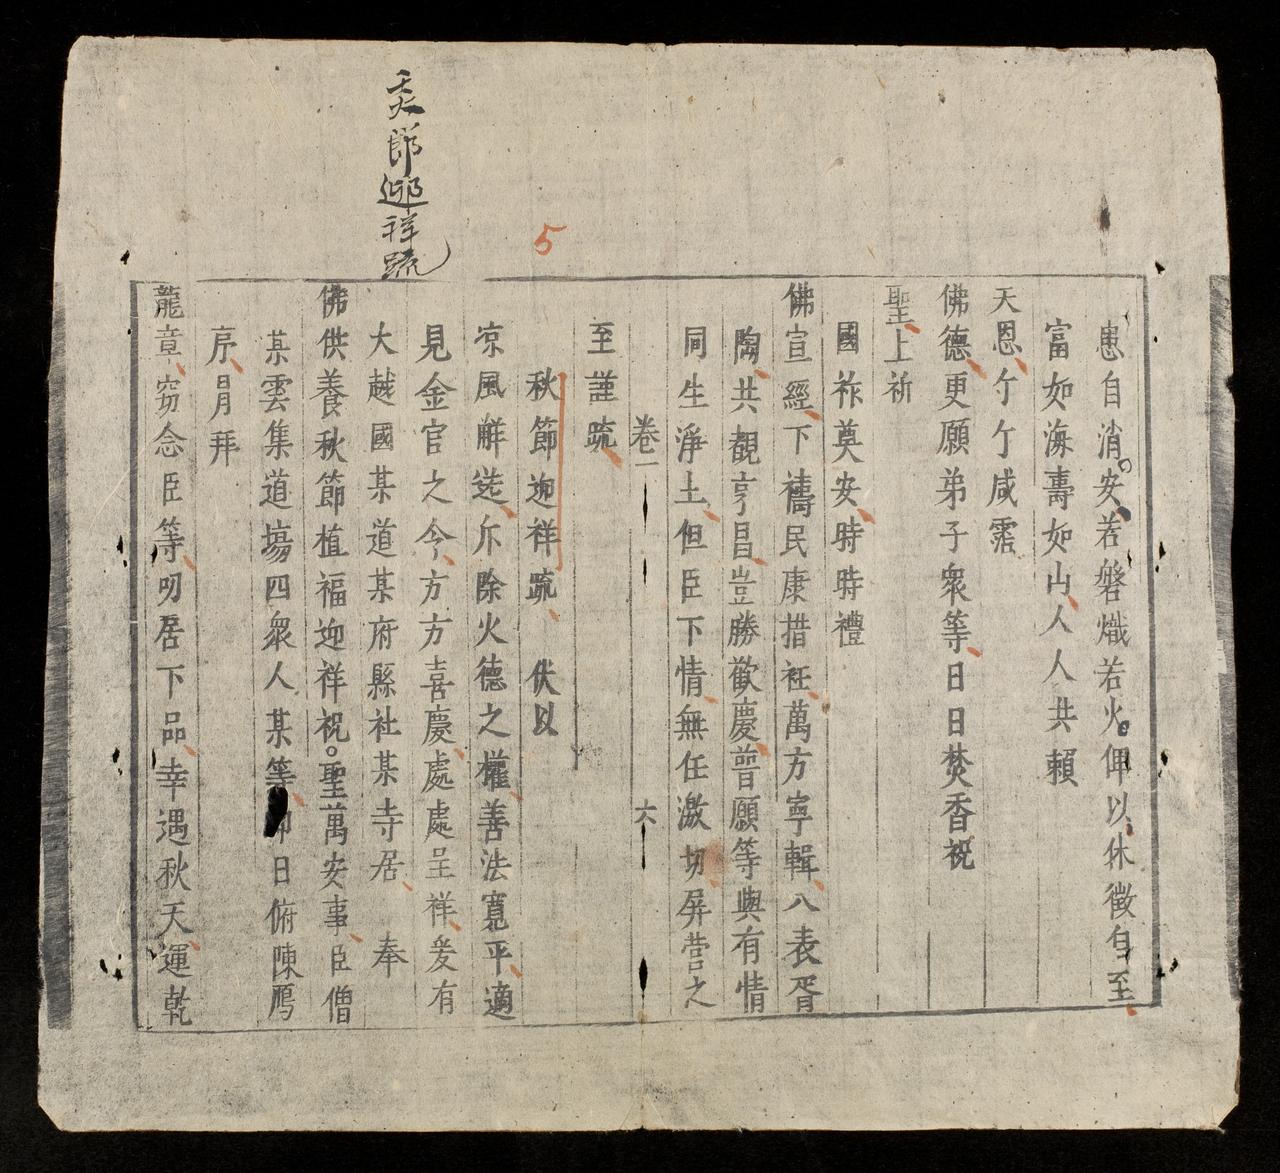 秋節迎祥疏
5
患自消安若磐熾若火俾以休徵自至
富如海壽如山人人共賴
天恩亇亇咸霑
佛德更願弟子衆等日日焚香祝
聖上祈
國祚奠安時時禮
佛宣經下禱民康措袵萬方寧輯八表胥
陶共覩亨昌豈勝歡慶普願等與有情
同生淨土但臣下情無任激切屏營之
卷一 六
至謹疏
秋節迎祥疏 伏以
凉風觧逰斥除火德之權善法寬平適
見金官之今方方喜慶處處呈祥爰有
大越國某道某府縣社某寺居 奉
佛供養秋節植福迎祥祝聖萬安事臣僧
某雲集道塲四衆人某等即日俯陳鴈
序肙拜
龍章窃念臣等叨居下品幸遇秋天運乾